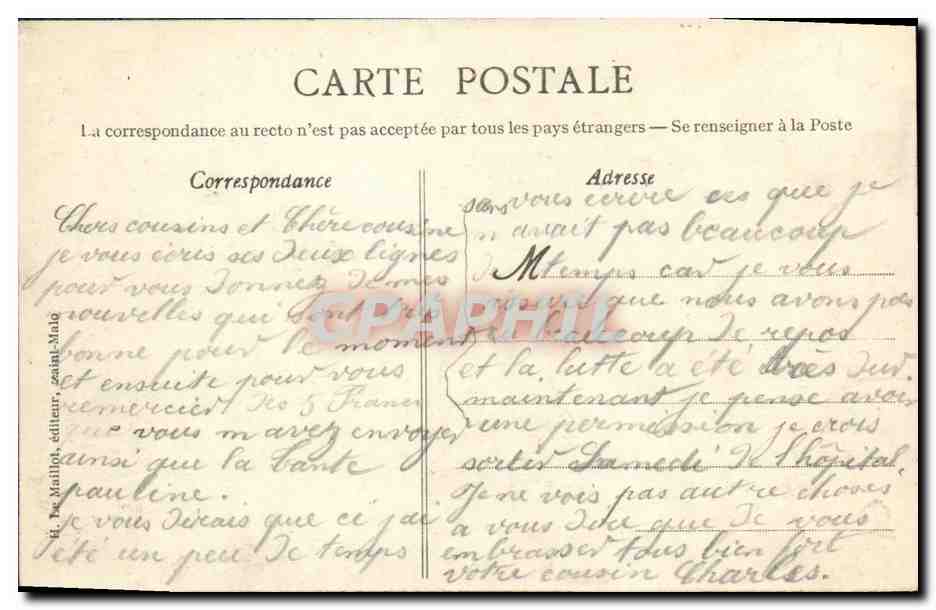 CARTE POSTALE
La correspondance au recto n'est pas acceptée par tous les pays étrangers — Se renseigner à la Poste
Correspondance
Chers cousins et Chère cousine
je vous écris ses deux lignes
pour vous donnez de mes
nouvelles qui sont très
bonne pour le moment
et ensuite pour vous
remercier des 5 Francs
que vous m avez envoyer
ainsi que la tante
pauline.
je vous dirais que ci j ai
été un peu de temps
Adresse
sans vous ecrire ces que je
n avait pas beaucoup
de M temps car je vous
assure que nous avons pas
beaucoup de repos
et la lutte a été très dur.
maintenant je pense avoir
une permission je crois
sortir Samedi de l hôpital.
Je ne vois pas autre choses
a vous dire que de vous
embrasser tous bien fort
votre cousin Charles.
H. Le Maillot, éditeur, Saint-Malo
CPAPHIL